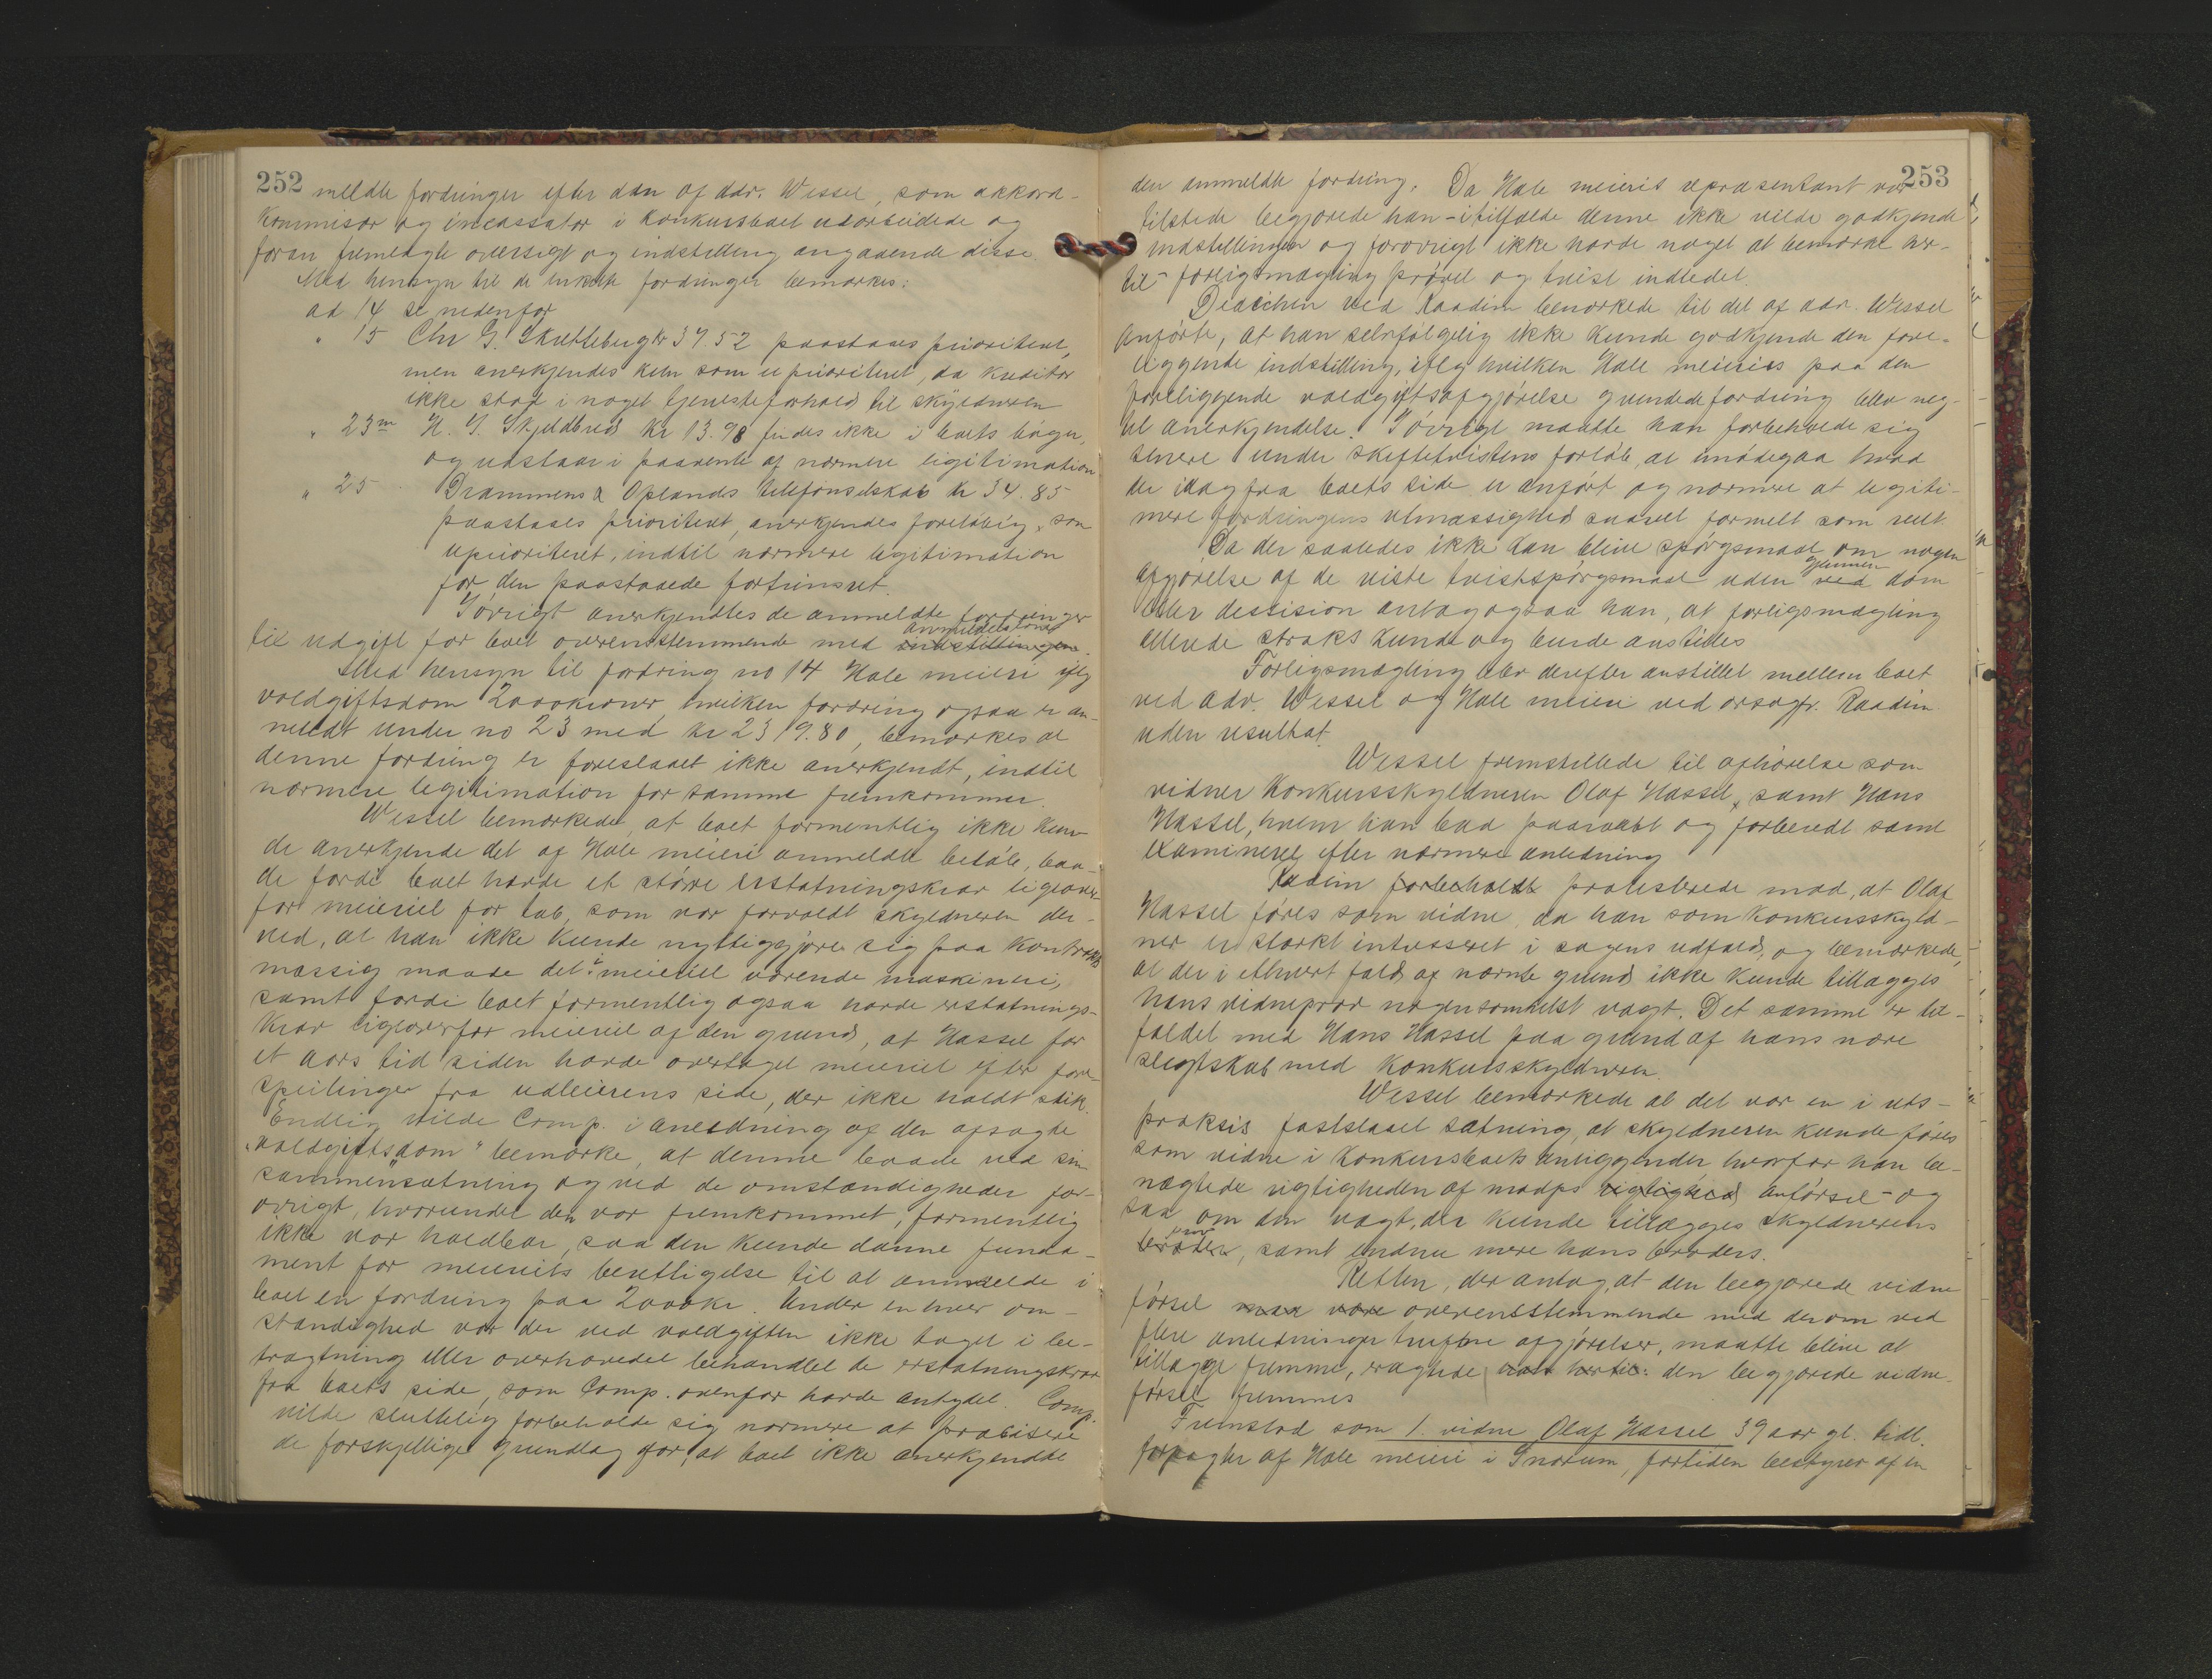 252
meldte fordringer efter den af adv. Wessel, som akkord-
kommisær og incassator i konkursboet udarbeidede og
foran fremlagte oversigt og indstilling angaaende disse.
Med hensyn til de enkelte fordringer bemærkes:
ad 14 se nedenfor
" 15 Chr G. Skutteberg kr 37.52 paastaaes prioriteret,
men anerkjendes kun som uprioriteret, da kreditor
ikke stod i noget tjenesteforhold til skyldneren
" 23 N. G. Skjeldbred kr 13.98 findes ikke i boets bøger,
og udstaar i paavente af nærmere legitimation
" 25 Drammens & Oplands telefonselskab kr 34.85
paastaaes prioriteret, anerkjendes foreløbig som
uprioriteret, indtil nærmere legitimation
for den paastaaede fortrinsret.
Iøvrigt anerkjendtes de anmeldte fordringer
til udgift for boet overensstemmende med anmeldelserne indstillingen.
Med hensyn til fordring no 14 Hole meieri iflg
voldgiftsdom 2000 kroner, hvilken fordring ogsaa er an-
meldt under no 23 med kr 2319.80, bemærkes at
denne fordring er foreslaaet ikke anerkjendt, indtil
nærmere legitimation for samme fremkommer.
Wessel bemærkede, at boet formentlig ikke kun-
de anerkjende det af Hole meieri anmeldte beløb, baa-
de fordi boet havde et større erstatningskrav ligeover-
for meieriet for tab, som var forvoldt skyldneren der-
ved, at han ikke kunde nyttiggjøre sig paa kontrakts-
mæssig maade det i meieriet værende maskineri,
samt fordi boet formentlig ogsaa havde erstatnings-
krav ligeoverfor meieriet af den grund, at Hassel for
et aars tid siden havde overtaget meieriet efter fore-
speilinger fra udleierens side, der ikke holdt stik.
Endlig vilde Comp. i anledning af den afsagte
"voldgiftsdom" bemærke, at denne baade ved sin
sammensætning og ved de omstændigheder for-
øvrigt, hvorunder den var fremkommet, formentlig
ikke var holdbar, saa den kunde danne funda-
ment for meieriets berettigelse til at anmelde i
boet en fordring paa 2000 kr. Under enhver om-
stændighed var der ved voldgiften ikke taget i be-
tragtning eller overhovedet behandlet de erstatningskrav
fra boets side, som Comp. ovenfor havde antydet. Comp.
vilde sluttelig forbeholde sig nærmere at præcisere
de forskjellige grundlag for, at boet ikke anerkjendte
253
den anmeldte fordring. Da Hole meieris repræsentant var
tilstede begjærede han – i tilfælde denne ikke vilde godkjende
indstillingen og forøvrigt ikke havde noget at bemærke her-
til – forligsmægling prøvet og tvist indledet.
ved Raadim bemærkede til det af adv. Wessel
anførte, at han selvfølgelig ikke kunde godkjende den fore-
liggende indstilling, iflg hvilken Hole meieris paa den
foreliggende voldgiftsafgjørelse grundede fordring blev neg-
tet anerkjendelse. Iøvrigt maatte han forbeholde sig
senere under skiftetvistens forløb, at imødegaa hvad
der idag fra boets side er anført og nærmere at legiti-
mere fordringens retmæssighed saavel formelt som reelt.
Da der saaledes ikke kan blive spørgsmaal om nogen
afgjørelse af de reiste tvistspørgsmaal uden gjennem ved dom
eller decision antog ogsaa han, at forligsmægling
allerede straks kunde og burde anstilles
Forligsmægling blev derefter anstillet mellem boet
ved adv. Wessel og Hole meieri ved orsagfr. Raadim
uden resultat.
Wessel fremstillede til afhørelse som
vidner konkursskyldneren Olaf Hassel, samt Hans
Hassel, hvem han bad paaraabt og forberedt samt
examineret efter nærmere anledning
Raadim forbeholdt protesterede mod, at Olaf
Hassel føres som vidne, da han som konkursskyld-
ner er stærkt interesseret i sagens udfald, og bemærkede,
at der i ethvert fald af nævnte grund ikke kunde tillægges
hans vidneprov nogensomhelst vægt. Det samme er til-
fældet med Hans Hassel paa grund af hans nære
slegtskab med konkursskyldneren.
Wessel bemærkede at det var en i rets-
praksis fastslaaet sætning, at skyldneren kunde føres
som vidne i konkursboets anliggender, hvorfor han be-
nægtede rigtigheden af modps rigtighed anførsel – og
saa om den vægt, der kunde tillægges skyldnerens
prov, samt endnu mere hans broders.
Retten, der antog, at den begjærede vidne
førsel maa være overensstemmende med derom ved
flere anledninger trufne afgjørelser, maatte blive at
tillægge fremme, eragtede den begjærede vidne-
førsel fremmes
Fremstod som 1. vidne Olaf Hassel 39 aar gl. tidl.
forpagter af Hole meieri i Snarum, fortiden bestyrer af en